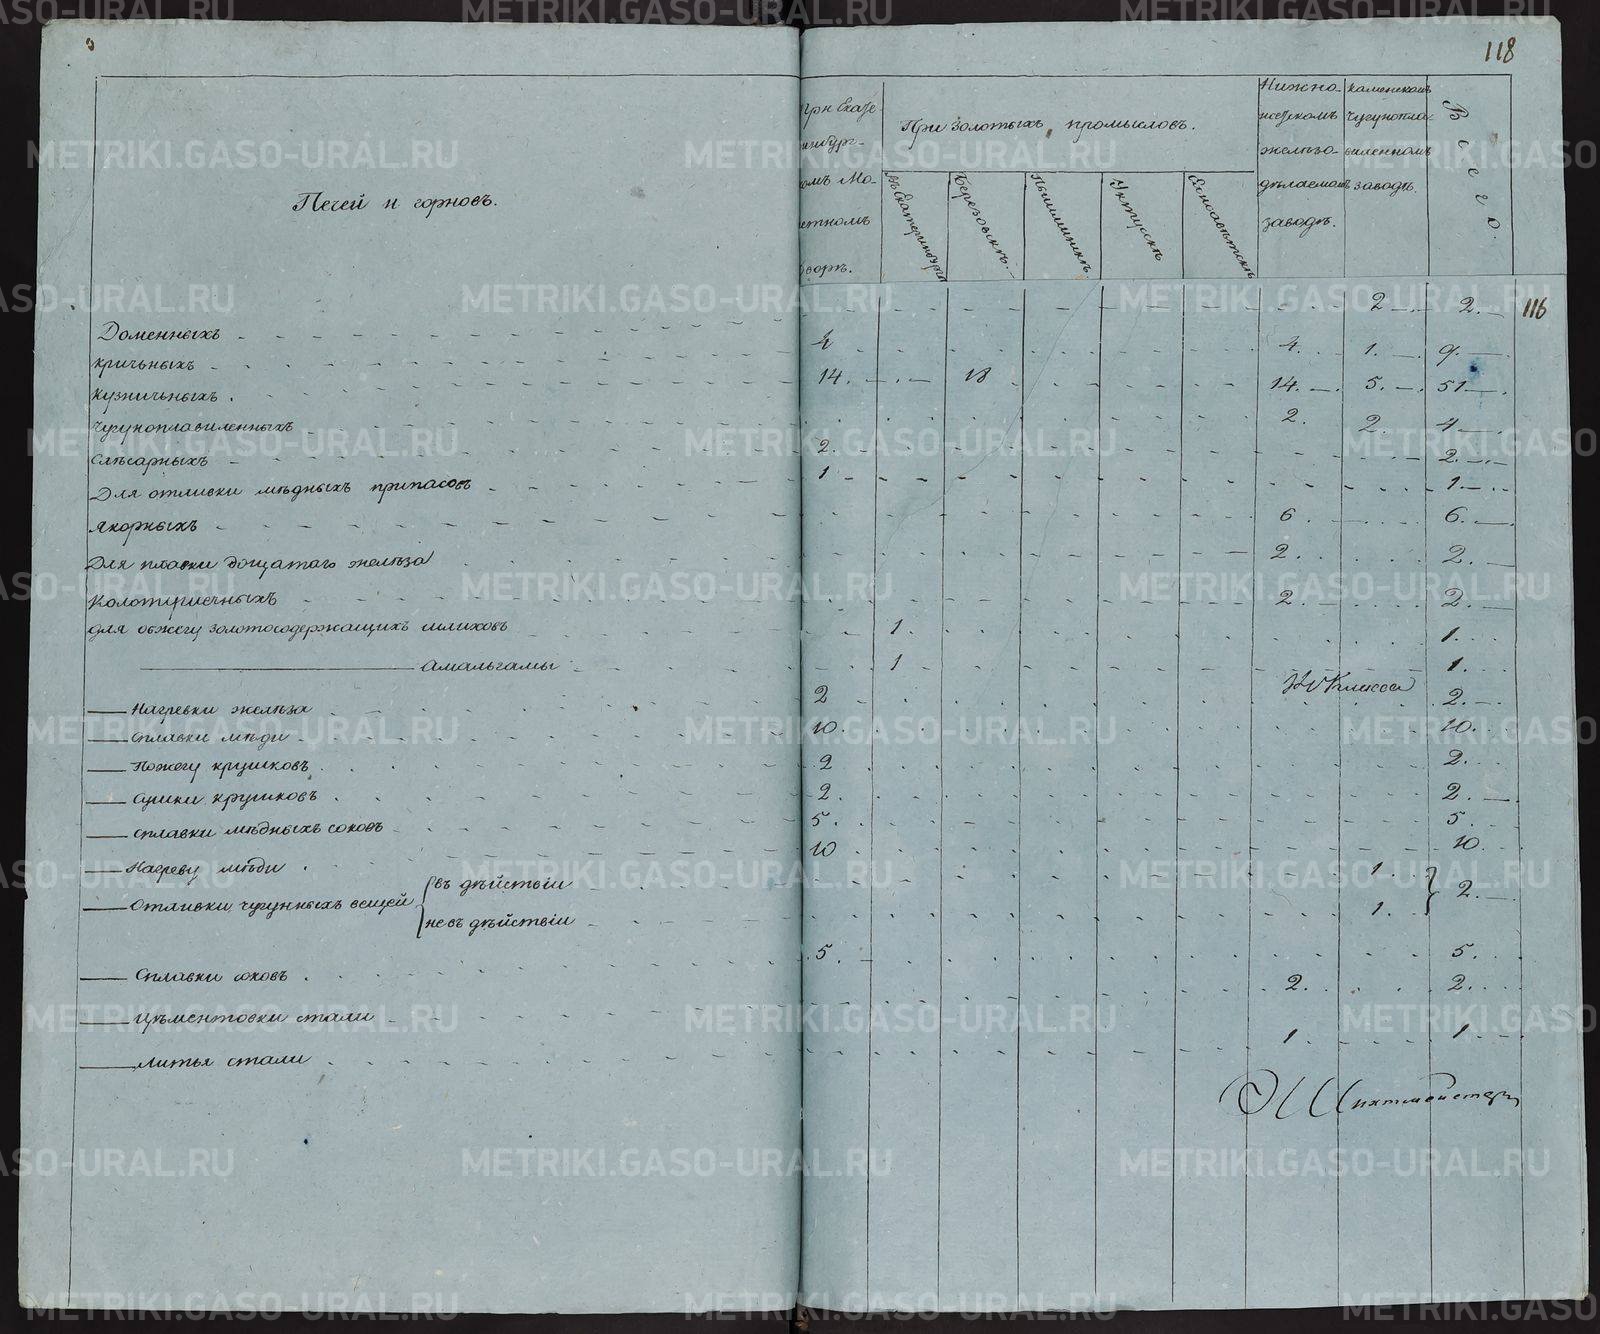 118
Печей и горновъ.
При Екате-
ринбург-
комъ Мо-
нетномъ
дворѣ.
При золотыхъ промыслов.
въ Екатеринбурге
Березовскѣ.
Пышминскѣ
Уктусскѣ
Елисаветскѣ
Нижно-
исетскомъ
желѣзо-
дѣлаемомъ
заводѣ.
Каменскомъ
чугунопла-
виленномъ
заводѣ.
Всего.
116
Доменныхъ 2 2.
Кричныхъ 4 4. 1. 9.
Кузничныхъ. 14. 18 14. 5. 51
Чугуноплавиленныхъ 2. 2. 4
Слѣсарныхъ 2. 2.
Для отливки мѣдныхъ припасовъ 1 1.
Якорныхъ 6. 6.
Для плавки дощатаго желѣза 2. 2.
Колотушечныхъ 2. 2.
для обжегу золотосодержащихъ шлиховъ 1. 1.
амальгамы 1 1.
Нагревки желѣза 2 2.
Сплавки мѣди 10. 10.
Пожегу кружковъ 2 2.
Сушки кружковъ 2. 2.
Сплавки мѣдныхъ соковъ 5. 5.
Нагреву мѣди 10 10
Отливки чугунныхъ вещей
въ дѣйствіи 1.
не въ дѣйствіи 1.
2.
Сплавки соковъ 5. 5.
Цѣментовки стали 2. 2.
Литья стали 1 1
класса
Шихтмейстеръ
METRIKI.GASO-URAL.RU